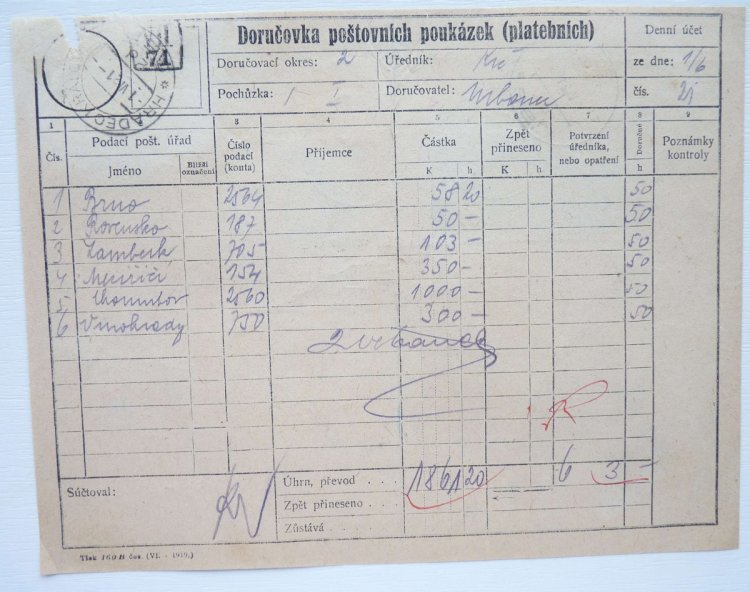 Doručovka poštovních poukázek (platebních)
Denní účet
Doručovací okres: 2
Úředník:
ze dne: 1/6
Pochůzka: I
Doručovatel: Urbanec
čís.
71
HRADEC
1 3 5 6 7 8 9
Čís.
Podací pošt. úřad
Jméno
Bližší označení
Číslo podací (konta)
Příjemce
Částka
K h
Zpět přineseno
K h
Potvrzení úředníka, nebo opatření
Doručné
h
Poznámky kontroly
1 Brno 2564 58 20 50
2 Rovensko 187 50 — 50
3 Žamberk 705 103 — 50
4 Meziříčí 154 350 — 50
5 Chomutov 2560 1000 — 50
6 Vinohrady 750 300 — 50
Súčtoval:
Úhrn, převod . . . 1861 20 6 3 —
Zpět přineseno .
Zůstává . . .
Tisk 160B čes. (VI. - 1919.)